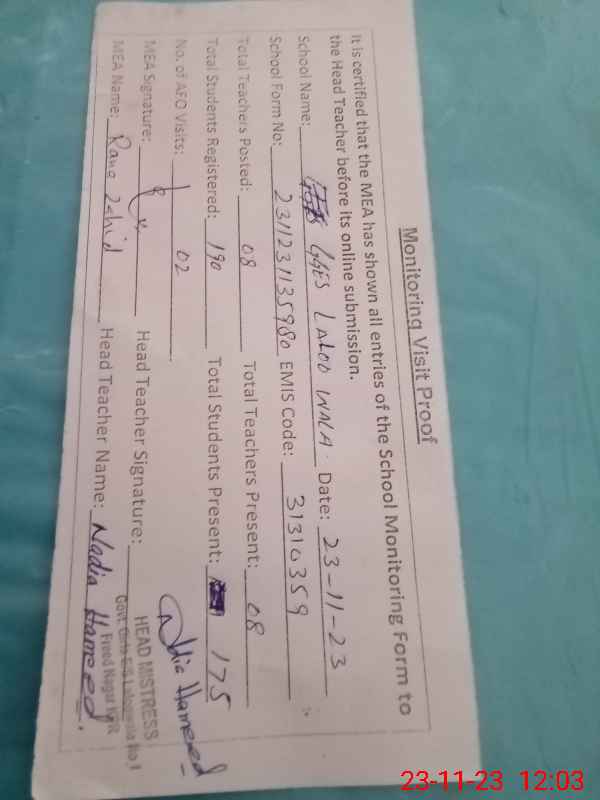 Monitoring Visit Proof
It is certified that the MEA has shown all entries of the School Monitoring Form to
the Head Teacher before its online submission.
School Name: GGES LALOO WALA. Date: 23-11-23
School Form No: 231123113598​0 EMIS Code: 31310359
Total Teachers Posted: 08 Total Teachers Present: 08
Total Students Registered: 190 Total Students Present: 175
No. of AFO Visits: 02
MEA Signature: Head Teacher Signature: Nadia Hameed
MEA Name: Rana Zahid Head Teacher Name: Nadia Hameed.
HEAD MISTRESS
Govt. Girls E/S No,1
Freed Nagar
23-11-23 12:03